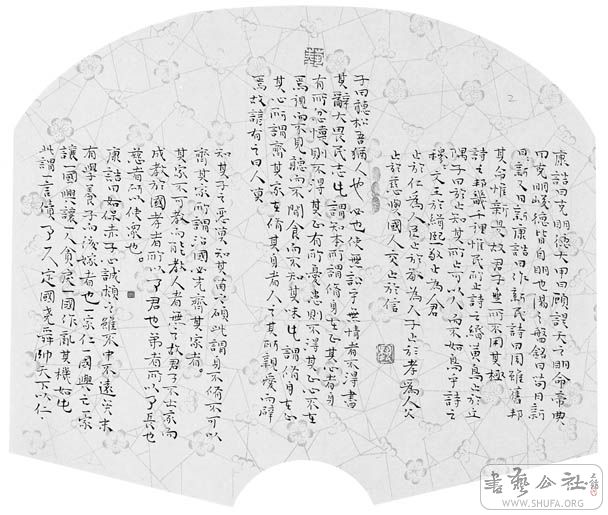 康誥曰克明德大甲曰顧諟天之明命帝典
曰克明峻德皆自明也湯之盤銘曰苟日新
日新又日新康誥曰作新民詩曰周雖舊邦
其命惟新是故君子無所不用其極
詩云邦畿千里惟民所止詩云緡蠻黃鳥止於丘
隅子曰於止知其所止可以人而不如鳥乎詩云
穆穆文王於緝熙敬止為人君
止於仁為人臣止於敬為人子止於孝為人父
止於慈與國人交止於信
子曰聽訟吾猶人也必也使無訟乎無情者不得盡
其辭大畏民志此謂知本所謂脩身在正其心者身
有所忿懥則不得其正有所憂患則不得其正心不在
焉視而不見聽而不聞食而不知其味此謂脩身在正
其心所謂齊其家在脩其身者人之其所親愛而辟
焉故諺有之曰人莫
知其子之惡莫知其苗之碩此謂身不脩不可以
齊其家所謂治國必先齊其家者
其家不可教而能教人者無之故君子不出家而
成教於國孝者所以事君也弟者所以事長也
慈者所以使眾也
康誥曰如保赤子心誠求之雖不中不遠矣未
有學養子而后嫁者也一家仁一國興仁一家
讓一國興讓一人貪戾一國作亂其機如此
此謂一言僨事一人定國堯舜帥天下以仁
書藝公社
WWW.SHUFA.ORG